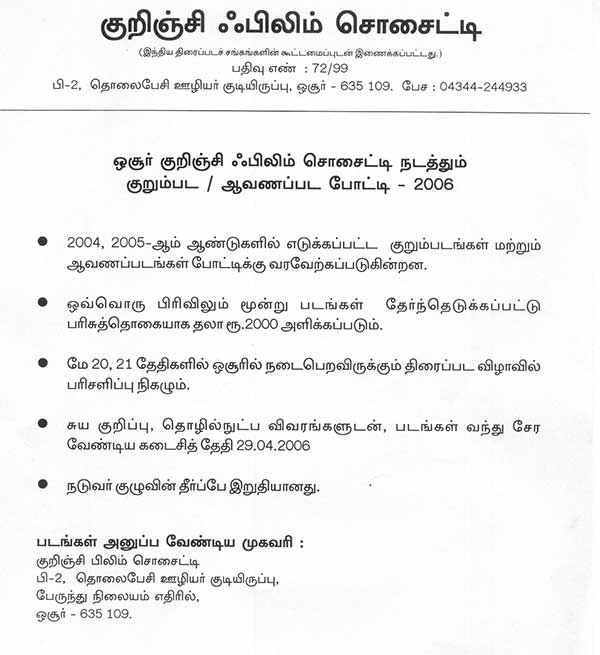 குறிஞ்சி ஃபிலிம் சொசைட்டி
(இந்திய திரைப்படச் சங்கங்களின் கூட்டமைப்புடன் இணைக்கப்பட்டது.)
பதிவு எண் : 72/99
பி-2, தொலைபேசி ஊழியர் குடியிருப்பு, ஒசூர் - 635 109. பேச : 04344-244933
ஒசூர் குறிஞ்சி ஃபிலிம் சொசைட்டி நடத்தும்
குறும்பட / ஆவணப்பட போட்டி - 2006
● 2004, 2005-ஆம் ஆண்டுகளில் எடுக்கப்பட்ட குறும்படங்கள் மற்றும்
ஆவணப்படங்கள் போட்டிக்கு வரவேற்கப்படுகின்றன.
● ஒவ்வொரு பிரிவிலும் மூன்று படங்கள் தேர்ந்தெடுக்கப்பட்டு
பரிசுத்தொகையாக தலா ரூ.2000 அளிக்கப்படும்.
● மே 20, 21 தேதிகளில் ஒசூரில் நடைபெறவிருக்கும் திரைப்பட விழாவில்
பரிசளிப்பு நிகழும்.
● சுய குறிப்பு, தொழில்நுட்ப விவரங்களுடன், படங்கள் வந்து சேர
வேண்டிய கடைசித் தேதி 29.04.2006
● நடுவர் குழுவின் தீர்ப்பே இறுதியானது.
படங்கள் அனுப்ப வேண்டிய முகவரி :
குறிஞ்சி பிலிம் சொசைட்டி
பி-2, தொலைபேசி ஊழியர் குடியிருப்பு,
பேருந்து நிலையம் எதிரில்,
ஒசூர் - 635 109.